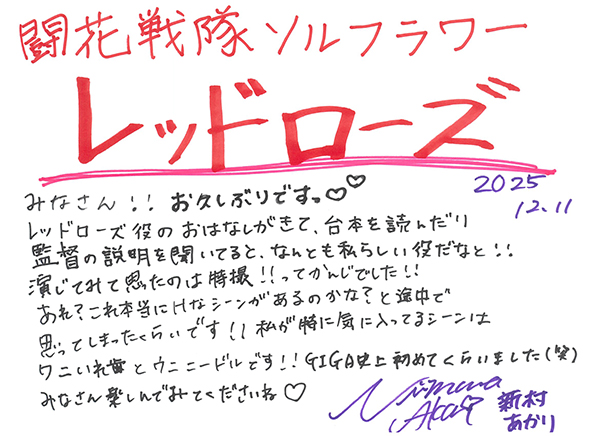 闘花戦隊ソルフラワー
レッドローズ
2025
12.11
みなさん!! お久しぶりですっ♡♡
レッドローズ役のおはなしがきて、台本を読んだり
監督の説明を聞いてると、なんとも私らしい役だなと!!
演じてみて思ったのは特撮!!ってかんじでした!!
あれ?これ本当にHなシーンがあるのかな?と途中で
思ってしまったくらいです!! 私が特に気に入ってるシーンは
ワニいれ とウニニードルです!! GIGA史上初めてくらいました(笑)
みなさん楽しんでみてくださいね♡
Niimura
Akari
新村
あかり